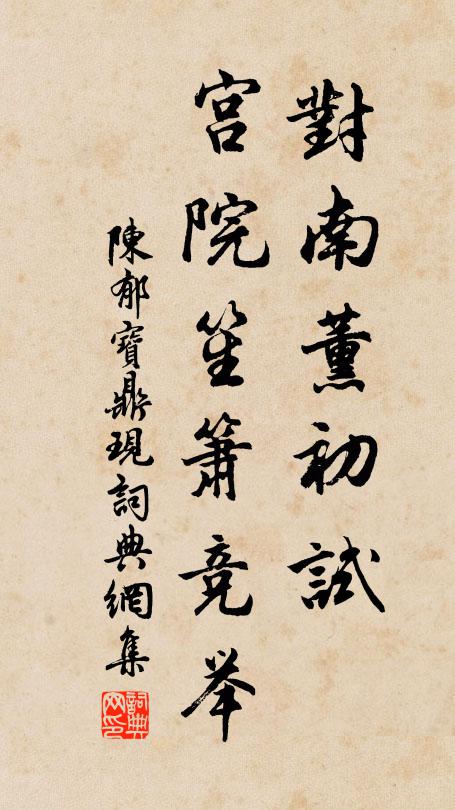 對南薰初試
宫院笙簫竞举
陳郁寶鼎現詞典網集
詞典网印